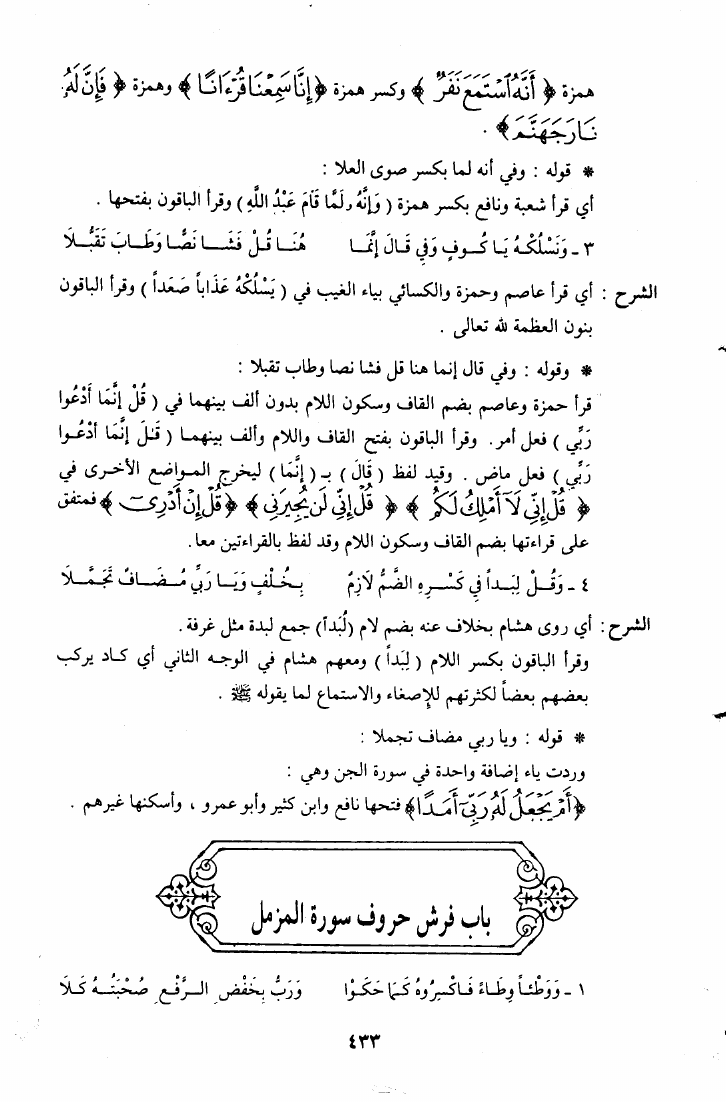 همزة ﴿ أَنَّهُ ٱسْتَمَعَ نَفَرٌ ﴾ وكسر همزة ﴿ إِنَّا سَمِعْنَا قُرْءَانًا ﴾ وهمزة ﴿ فَإِنَّ لَهُۥ
نَارَ جَهَنَّمَ ﴾ .
* قوله : وفي أنه لما بكسر صوى العلا :
أي قرأ شعبة ونافع بكسر همزة ( وَإِنَّهُ ، لَمَّا قَامَ عَبْدُ اللَّهِ ) وقرأ الباقون بفتحها .
٣ ـ وَنَسْلُكْهُ يَا كُوفٍ وَفِي قَالَ إِنَّمَا هُنَا قُلْ فَشَا نَصًّا وَطَابَ تَقَبُّلَا
الشرح : أي قرأ عاصم وحمزة والكسائي بياء الغيب في ( يَسْلُكْهُ عَذَاباً صَعَداً ) وقرأ الباقون
بنون العظمة لله تعالى .
* وقوله : وفي قال إنما هنا قل فشا نصا وطاب تقبلا :
قرأ حمزة وعاصم بضم القاف وسكون اللام بدون ألف بينهما في ( قُلْ إِنَّمَا أَدْعُوا
رَبِّي ) فعل أمر. وقرأ الباقون بفتح القاف واللام وألف بينهما ( قَالَ إِنَّمَا أَدْعُوا
رَبِّي ) فعل ماض . وقيد لفظ ( قَالَ ) بـ ( إِنَّمَا ) ليخرج المواضع الأخرى في
﴿ قُلْ إِنِّي لَآ أَمْلِكُ لَكُمْ ﴾ ﴿ قُلْ إِنِّي لَن يُجِيرَنِي ﴾ ﴿ قُلْ إِنْ أَدْرِىٓ ﴾ فمتفق
على قراءتها بضم القاف وسكون اللام وقد لفظ بالقراءتين معا.
٤ ـ وَقُلْ لِبَداً فِي كَسْرِهِ الضَّمُّ لَازِمٌ بِخُلْفٍ وَيَا رَبِّي مُضَافٌ تَجَمَّلَا
الشرح : أي روى هشام بخلاف عنه بضم لام (لُبَداً) جمع لبدة مثل غرفة.
وقرأ الباقون بكسر اللام ( لِبَداً ) ومعهم هشام في الوجه الثاني أي كاد يركب
بعضهم بعضاً لكثرتهم للإصغاء والاستماع لما يقوله ﷺ .
* قوله : ويا ربي مضاف تجملا :
وردت ياء إضافة واحدة في سورة الجن وهي :
﴿ أَمْ يَجْعَلُ لَهُۥ رَبِّيٓ أَمَدًا ﴾ فتحها نافع وابن كثير وأبو عمرو ، وأسكنها غيرهم .
باب فرش حروف سورة المزمل
١ ـ وَوَطْئاً وِطَاءً فَاكْسِرُوهُ كَمَا حَكَوْا وَرَبُّ بِخَفْضِ الرَّفْعِ صُحْبَتُهُ كَلَا
٤٣٣